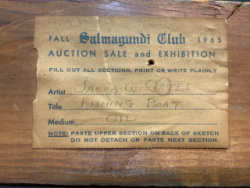 FALL Salmagundi Club 1965
AUCTION SALE and EXHIBITION
FILL OUT ALL SECTIONS, PRINT OR WRITE PLAINLY
Artist
Title FISHING BOAT
Medium OIL
NOTE: PASTE UPPER SECTION ON BACK OF SKETCH
DO NOT DETACH OR PASTE NEXT SECTION.